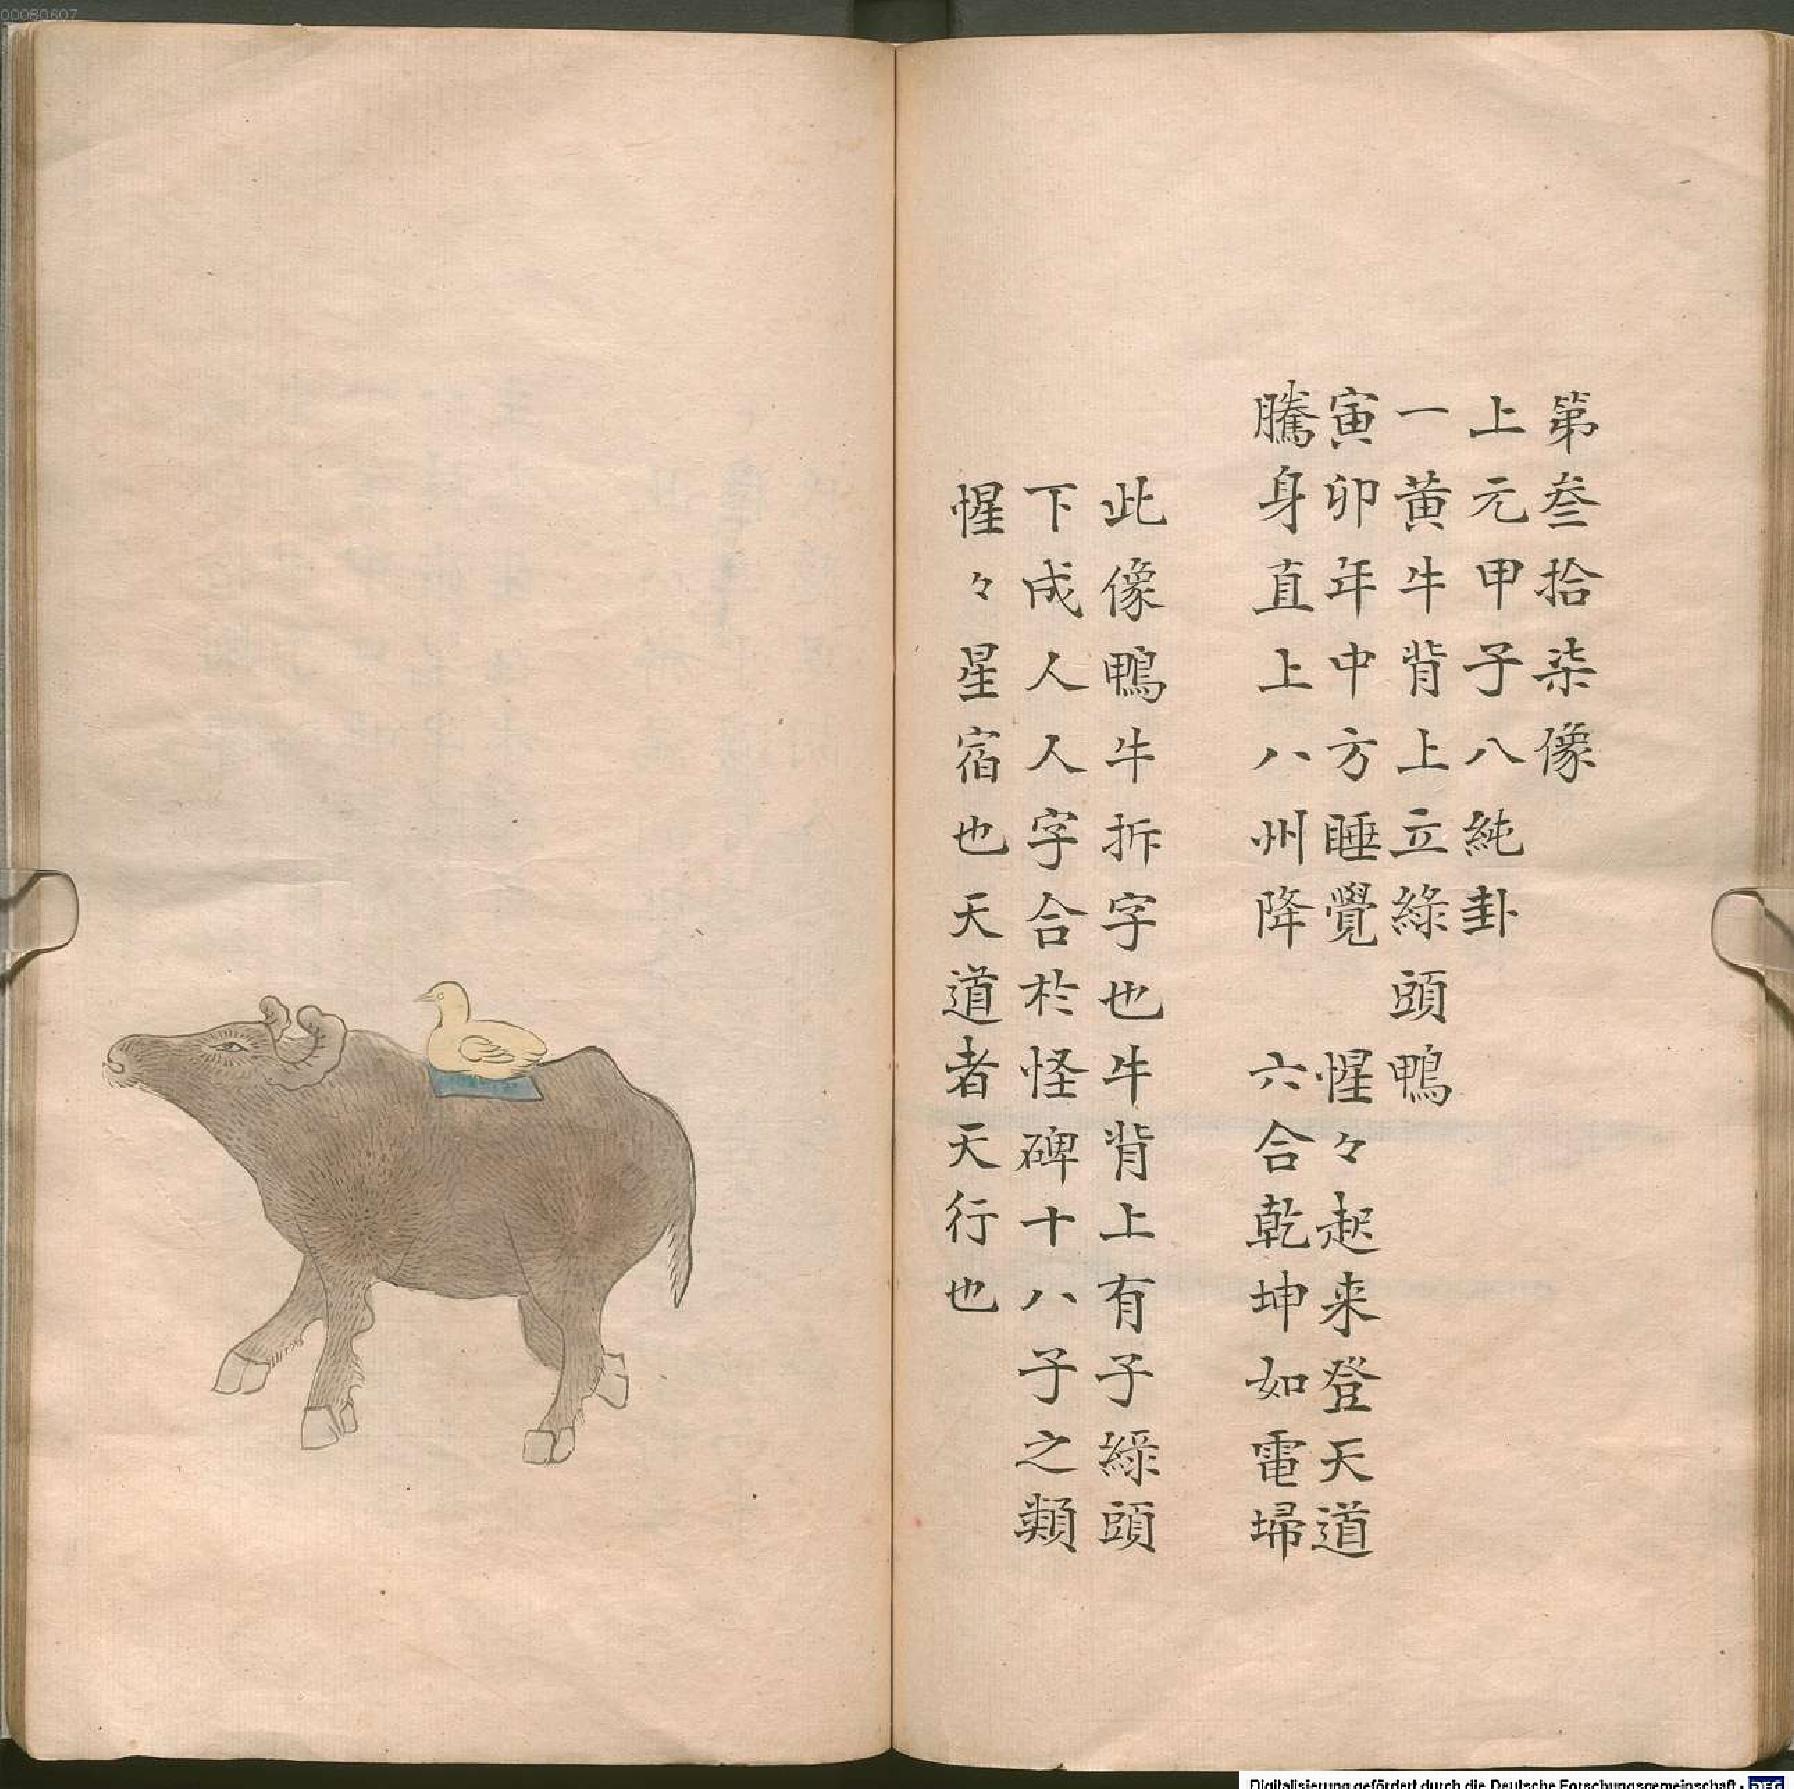 第叁拾柒像
上元甲子八純卦
一黄牛背上立綠頭鴨
寅卯年中方睡覺 惺々起来登天道
騰身直上八州降 六合乾坤如電埽
此像鴨牛拆字也牛背上有子綠頭
下成人人字合於怪碑十八子之類
惺々星宿也天道者天行也
00080607
Digitalisierung gefördert durch die Deutsche Forschungsgemeinschaft - DFG